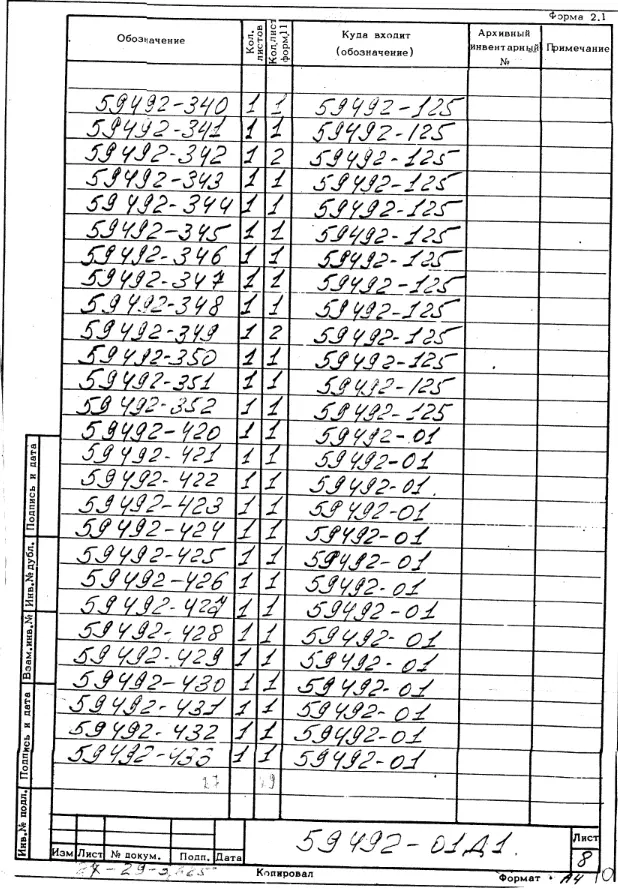 Форма 2.1
Обозначение Кол. листов Кол.лист форм.11 Куда входит (обозначение) Архивный инвентарный № Примечание
59492-340 1 1 59492-125
59492-341 1 1 59492-125
59492-342 1 2 59492-125
59492-343 1 1 59492-125
59492-344 1 1 59492-125
59492-345 1 1 59492-125
59492-346 1 1 59492-125
59492-347 1 1 59492-125
59492-348 1 1 59492-125
59492-349 1 2 59492-125
59492-350 1 1 59492-125
59492-351 1 1 59492-125
59492-352 1 1 59492-125
59492-420 1 1 59492-01
59492-421 1 1 59492-01
59492-422 1 1 59492-01
59492-423 1 1 59492-01
59492-424 1 1 59492-01
59492-425 1 1 59492-01
59492-426 1 1 59492-01
59492-427 1 1 59492-01
59492-428 1 1 59492-01
59492-429 1 1 59492-01
59492-430 1 1 59492-01
59492-431 1 1 59492-01
59492-432 1 1 59492-01
59492-433 1 1 59492-01
Подпись и дата
Инв.№ дубл.
Взам.инв.№
Подпись и дата
Инв.№ подл.
59492-01Д1.
Лист
8
Изм Лист № докум. Подп. Дата
Копировал
Формат А4
10